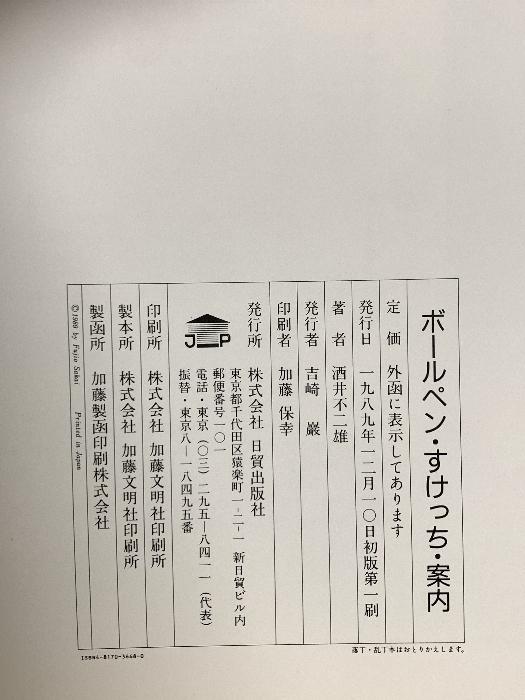 ボールペン・すけっち・案内
定　価　外函に表示してあります
発行日　一九八九年一二月一〇日初版第一刷
著　者　酒井不二雄
発行者　吉崎　巌
印刷者　加藤　保幸
発行所　株式会社　日貿出版社
東京都千代田区猿楽町一―二―一　新日貿ビル内
郵便番号一〇一
電話・東京（〇三）二九五―八四一一（代表）
振替・東京八―一八四九五番
JP
印刷所　株式会社　加藤文明社印刷所
製本所　株式会社　加藤文明社印刷所
製函所　加藤製函印刷株式会社
©1989 by Fujio Sakai　Printed in Japan
落丁・乱丁本はおとりかえします。
ISBN4-8170-3668-0